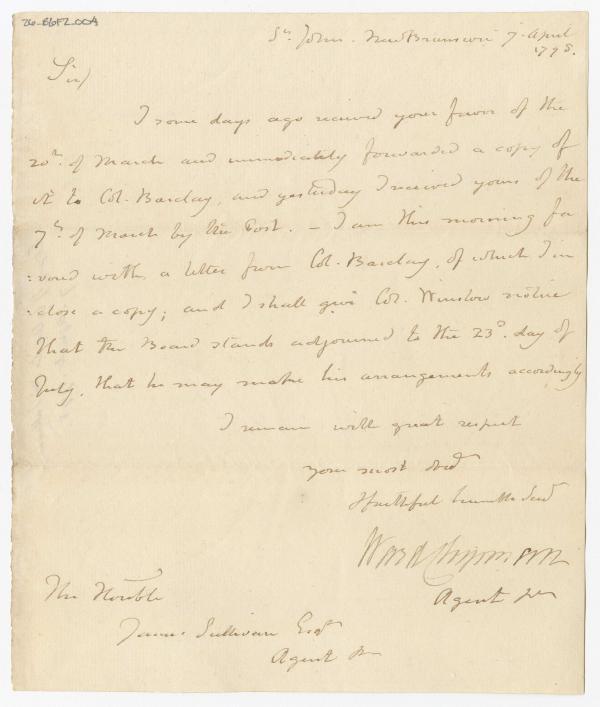 26-B6F2_004
St. John. New Brunswic 7. April
1798.
Sir/
I some days ago received your favor of the
20th. of March and immediately forwarded a copy of
it to Col. Barclay, and yesterday I received yours of the
7th. of March by the Post. – I am this morning fa
:vored with a letter from Col. Barclay, of which I in
:close a copy; and I shall give Col. Winslow notice
that the Board stands adjourned to the 23d. day of
July, that he may make his arrangements accordingly
I remain with great respect
your most obedt
& faithful humble Servt
Ward Chipman
Agent &c
The Honble
James Sullivan Esqr
Agent &c